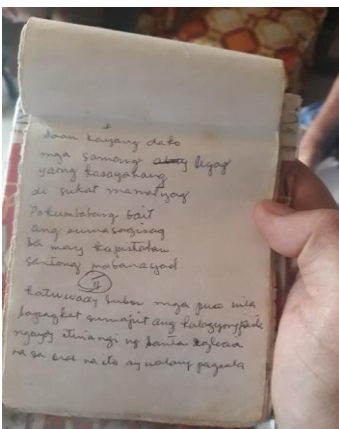 Saan kayang dako
mga samong ligag
yaong kasayahang
di sukat mamalyag
Pakumbabang bait
ang sumasagisag
sa may kapistahan
santong mabanayad
katuwaay subo mga puso nila
bagaket sumapit ang
ngayoy itinangi ng santa eglesia
na sa oras na ito ay walang pagsala